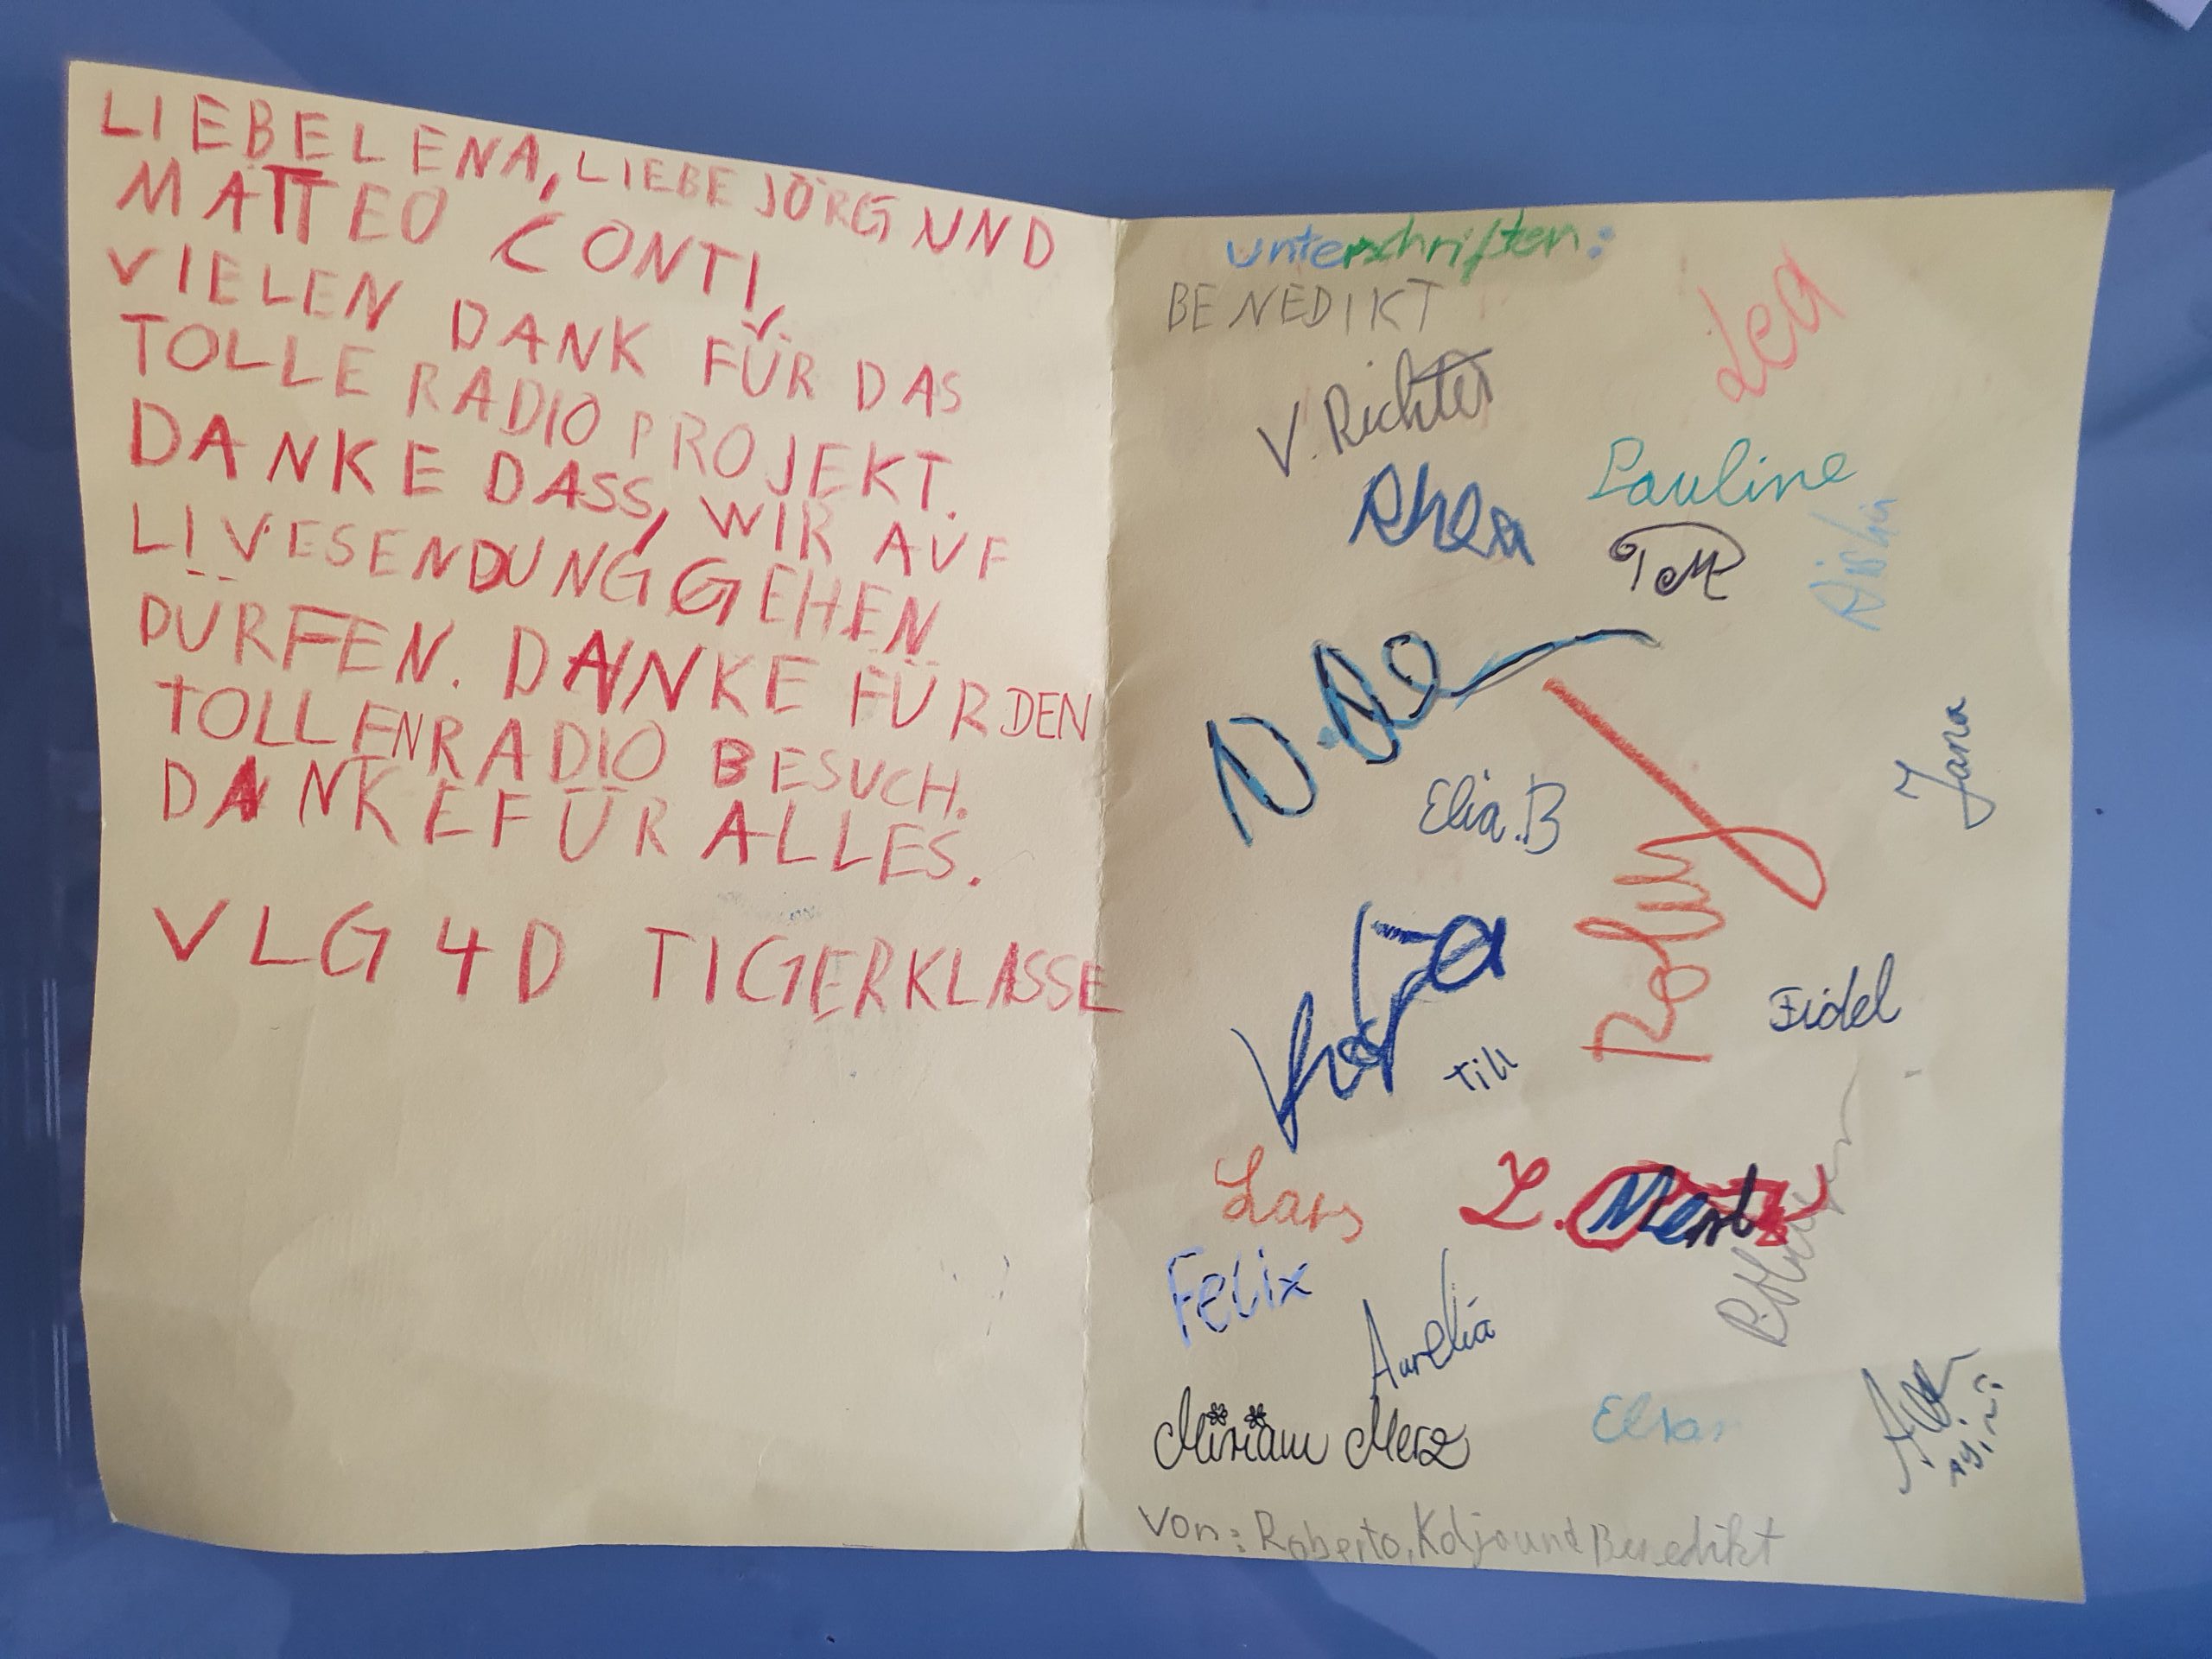 LIEBE LENA, LIEBE JÖRG UND
MATTEO CONTI,
VIELEN DANK FÜR DAS
TOLLE RADIO PROJEKT.
DANKE DASS, WIR AUF
LIVESENDUNG GEHEN
DÜRFEN. DANKE FÜR DEN
TOLLEN RADIO BESUCH.
DANKE FÜR ALLES.
VLG 4D TIGERKLASSE
unterschriften:
BENEDIKT
Lea
V. Richter
Pauline
Rhea
Elia.B
Jana
Fidel
Till
Lars
Felix
Aurelia
Miriam Merz
Von: Roberto, Kolja und Benedikt